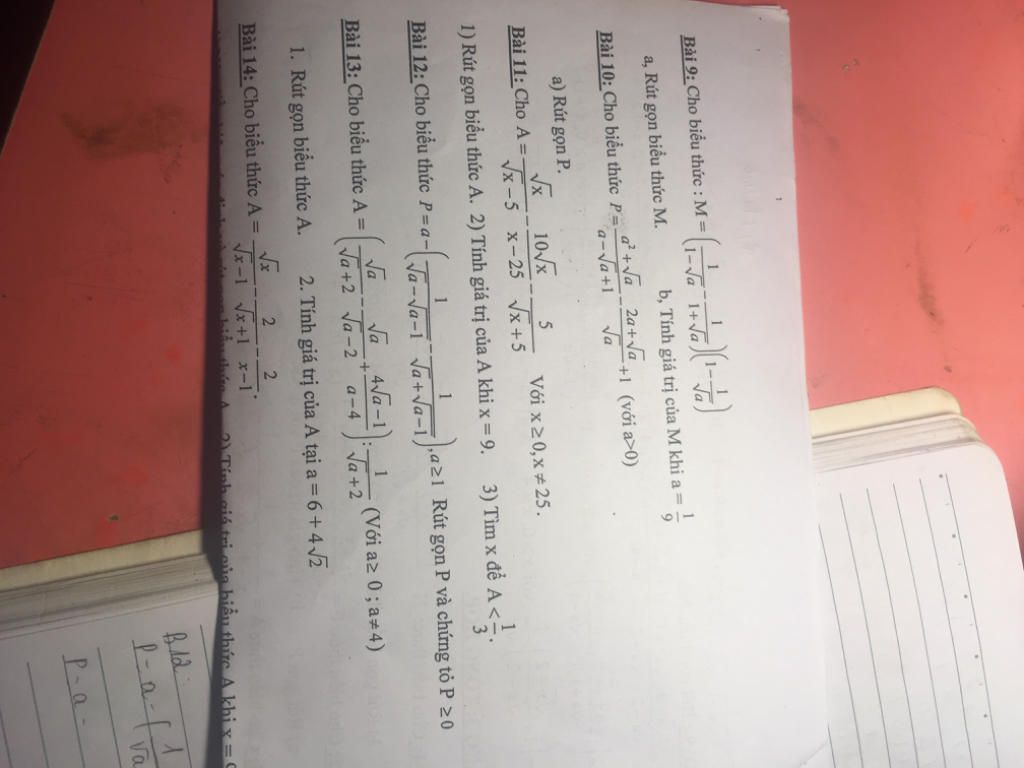 Bài 9: Cho biểu thức : M = (1/(1-√a) - 1/(1+√a))(1 - 1/√a)
a, Rút gọn biểu thức M. b, Tính giá trị của M khi a = 1/9
Bài 10: Cho biểu thức P = (a²+√a)/(a-√a+1) - (2a+√a)/√a + 1 (với a>0)
a) Rút gọn P.
Bài 11: Cho A = √x/(√x-5) - 10√x/(x-25) - 5/(√x+5) Với x ≥ 0, x ≠ 25.
1) Rút gọn biểu thức A. 2) Tính giá trị của A khi x = 9. 3) Tìm x để A < 1/3.
Bài 12: Cho biểu thức P = a - (1/(√a-√a-1) - 1/(√a+√a-1)), a ≥ 1 Rút gọn P và chứng tỏ P ≥ 0
Bài 13: Cho biểu thức A = (√a/(√a+2) - √a/(√a-2) + (4√a-1)/(a-4)) : 1/(√a+2) (Với a ≥ 0 ; a ≠ 4)
1. Rút gọn biểu thức A. 2. Tính giá trị của A tại a = 6 + 4√2
Bài 14: Cho biểu thức A = √x/(√x-1) - 2/(√x+1) - 2/(x-1).
biểu thức A. 2) Tính giá trị của biểu thức A khi x =
B12:
P = a - (1/√a
P = a -